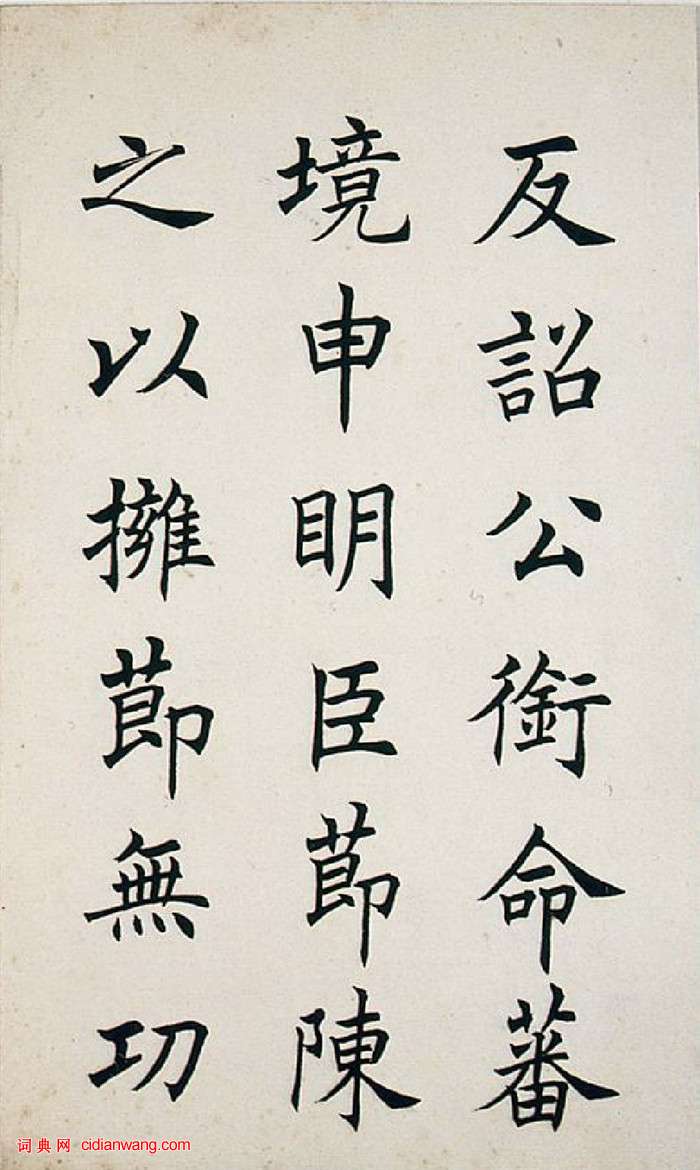 反詔公銜命蕃
境申明臣節陳
之以擁節無功
词典网 cidianwang.com